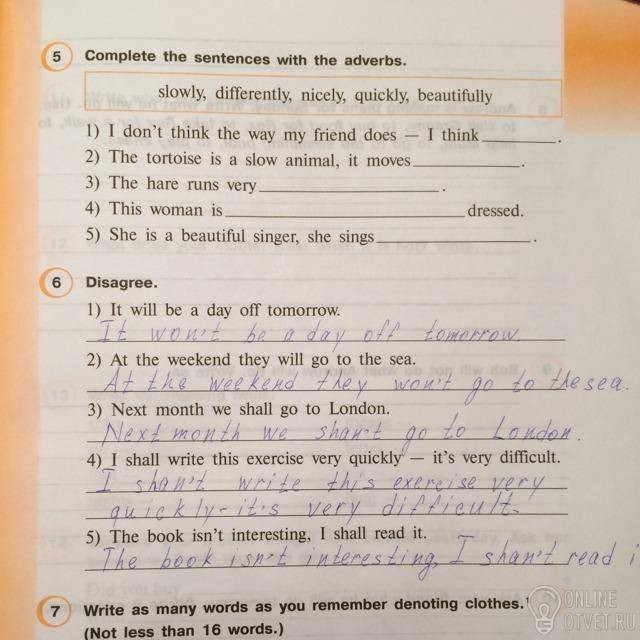 5 Complete the sentences with the adverbs.
slowly, differently, nicely, quickly, beautifully
1) I don't think the way my friend does — I think ____________.
2) The tortoise is a slow animal, it moves ____________.
3) The hare runs very ____________.
4) This woman is ____________ dressed.
5) She is a beautiful singer, she sings ____________.
6 Disagree.
1) It will be a day off tomorrow.
It won't be a day off tomorrow.
2) At the weekend they will go to the sea.
At the weekend they won't go to the sea.
3) Next month we shall go to London.
Next month we shan't go to London.
4) I shall write this exercise very quickly — it's very difficult.
I shan't write this exercise very
quickly - it's very difficult.
5) The book isn't interesting, I shall read it.
The book isn't interesting, I shan't read i
7 Write as many words as you remember denoting clothes.
(Not less than 16 words.)
ONLINE
OTVET.RU